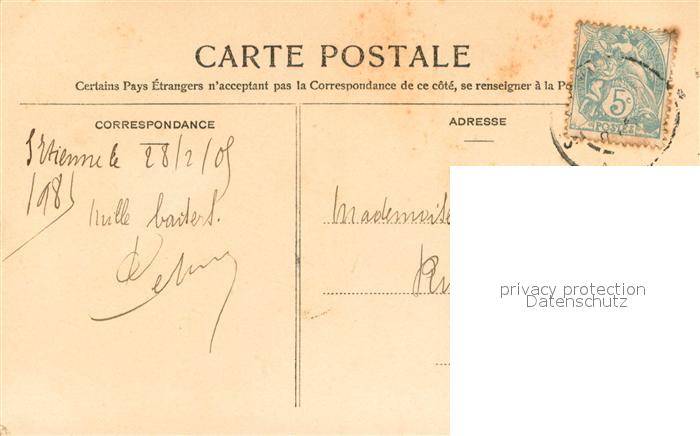 CARTE POSTALE
Certains Pays Étrangers n'acceptant pas la Correspondance de ce côté, se renseigner à la
CORRESPONDANCE
ADRESSE
5c
POSTES
St Etienne le 28/2/05
Mille baisers.
Mademoise
privacy protection
Datenschutz